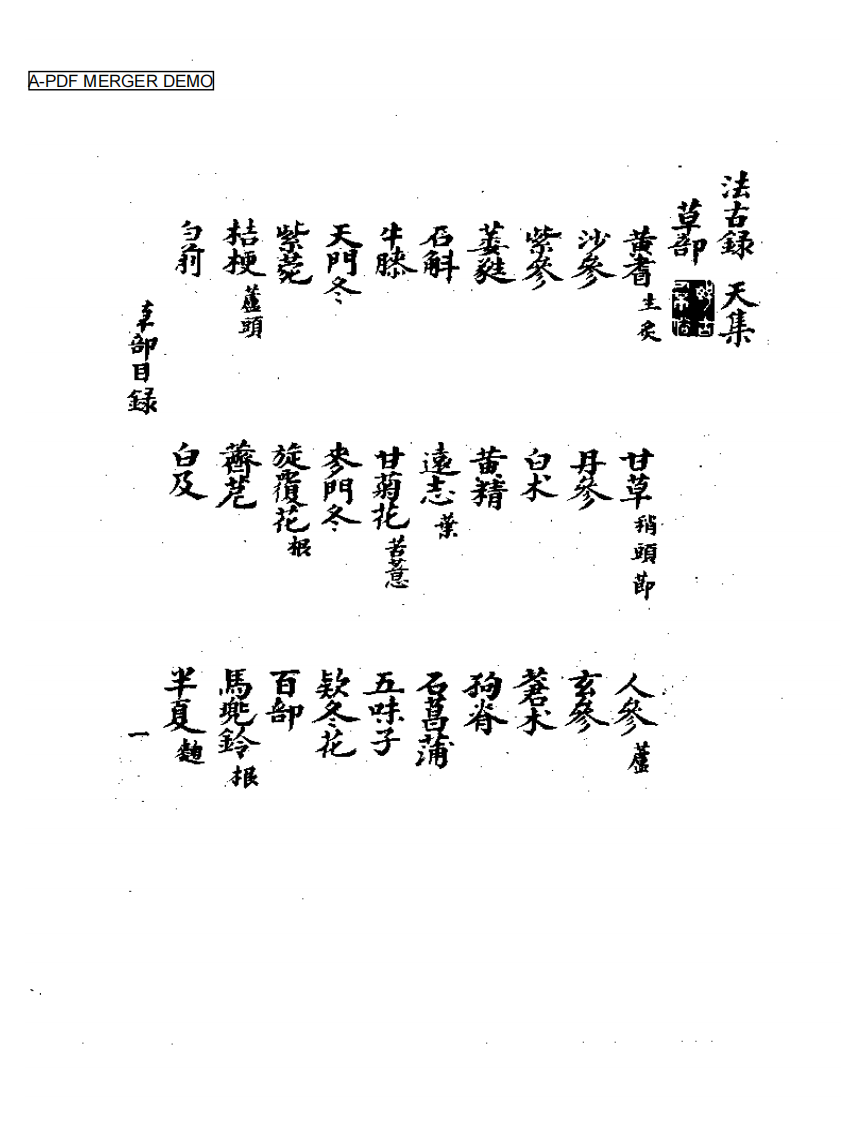 A-PDF MERGER DEMO
法古録 天集
草部
黄耆 生 炙 甘草 稍 頭 節 人參 蘆
沙參 丹參 玄參
紫參 白术 蒼术
萎蕤 黄精 狗脊
石斛 遠志 葉 石菖蒲
牛膝 甘菊花 苦薏 五味子
天門冬 麥門冬 欵冬花
紫菀 旋覆花 根 百部
桔梗 蘆頭 薺苨 馬兜鈴 根
白前 白及 半夏 麯
草部目録 一